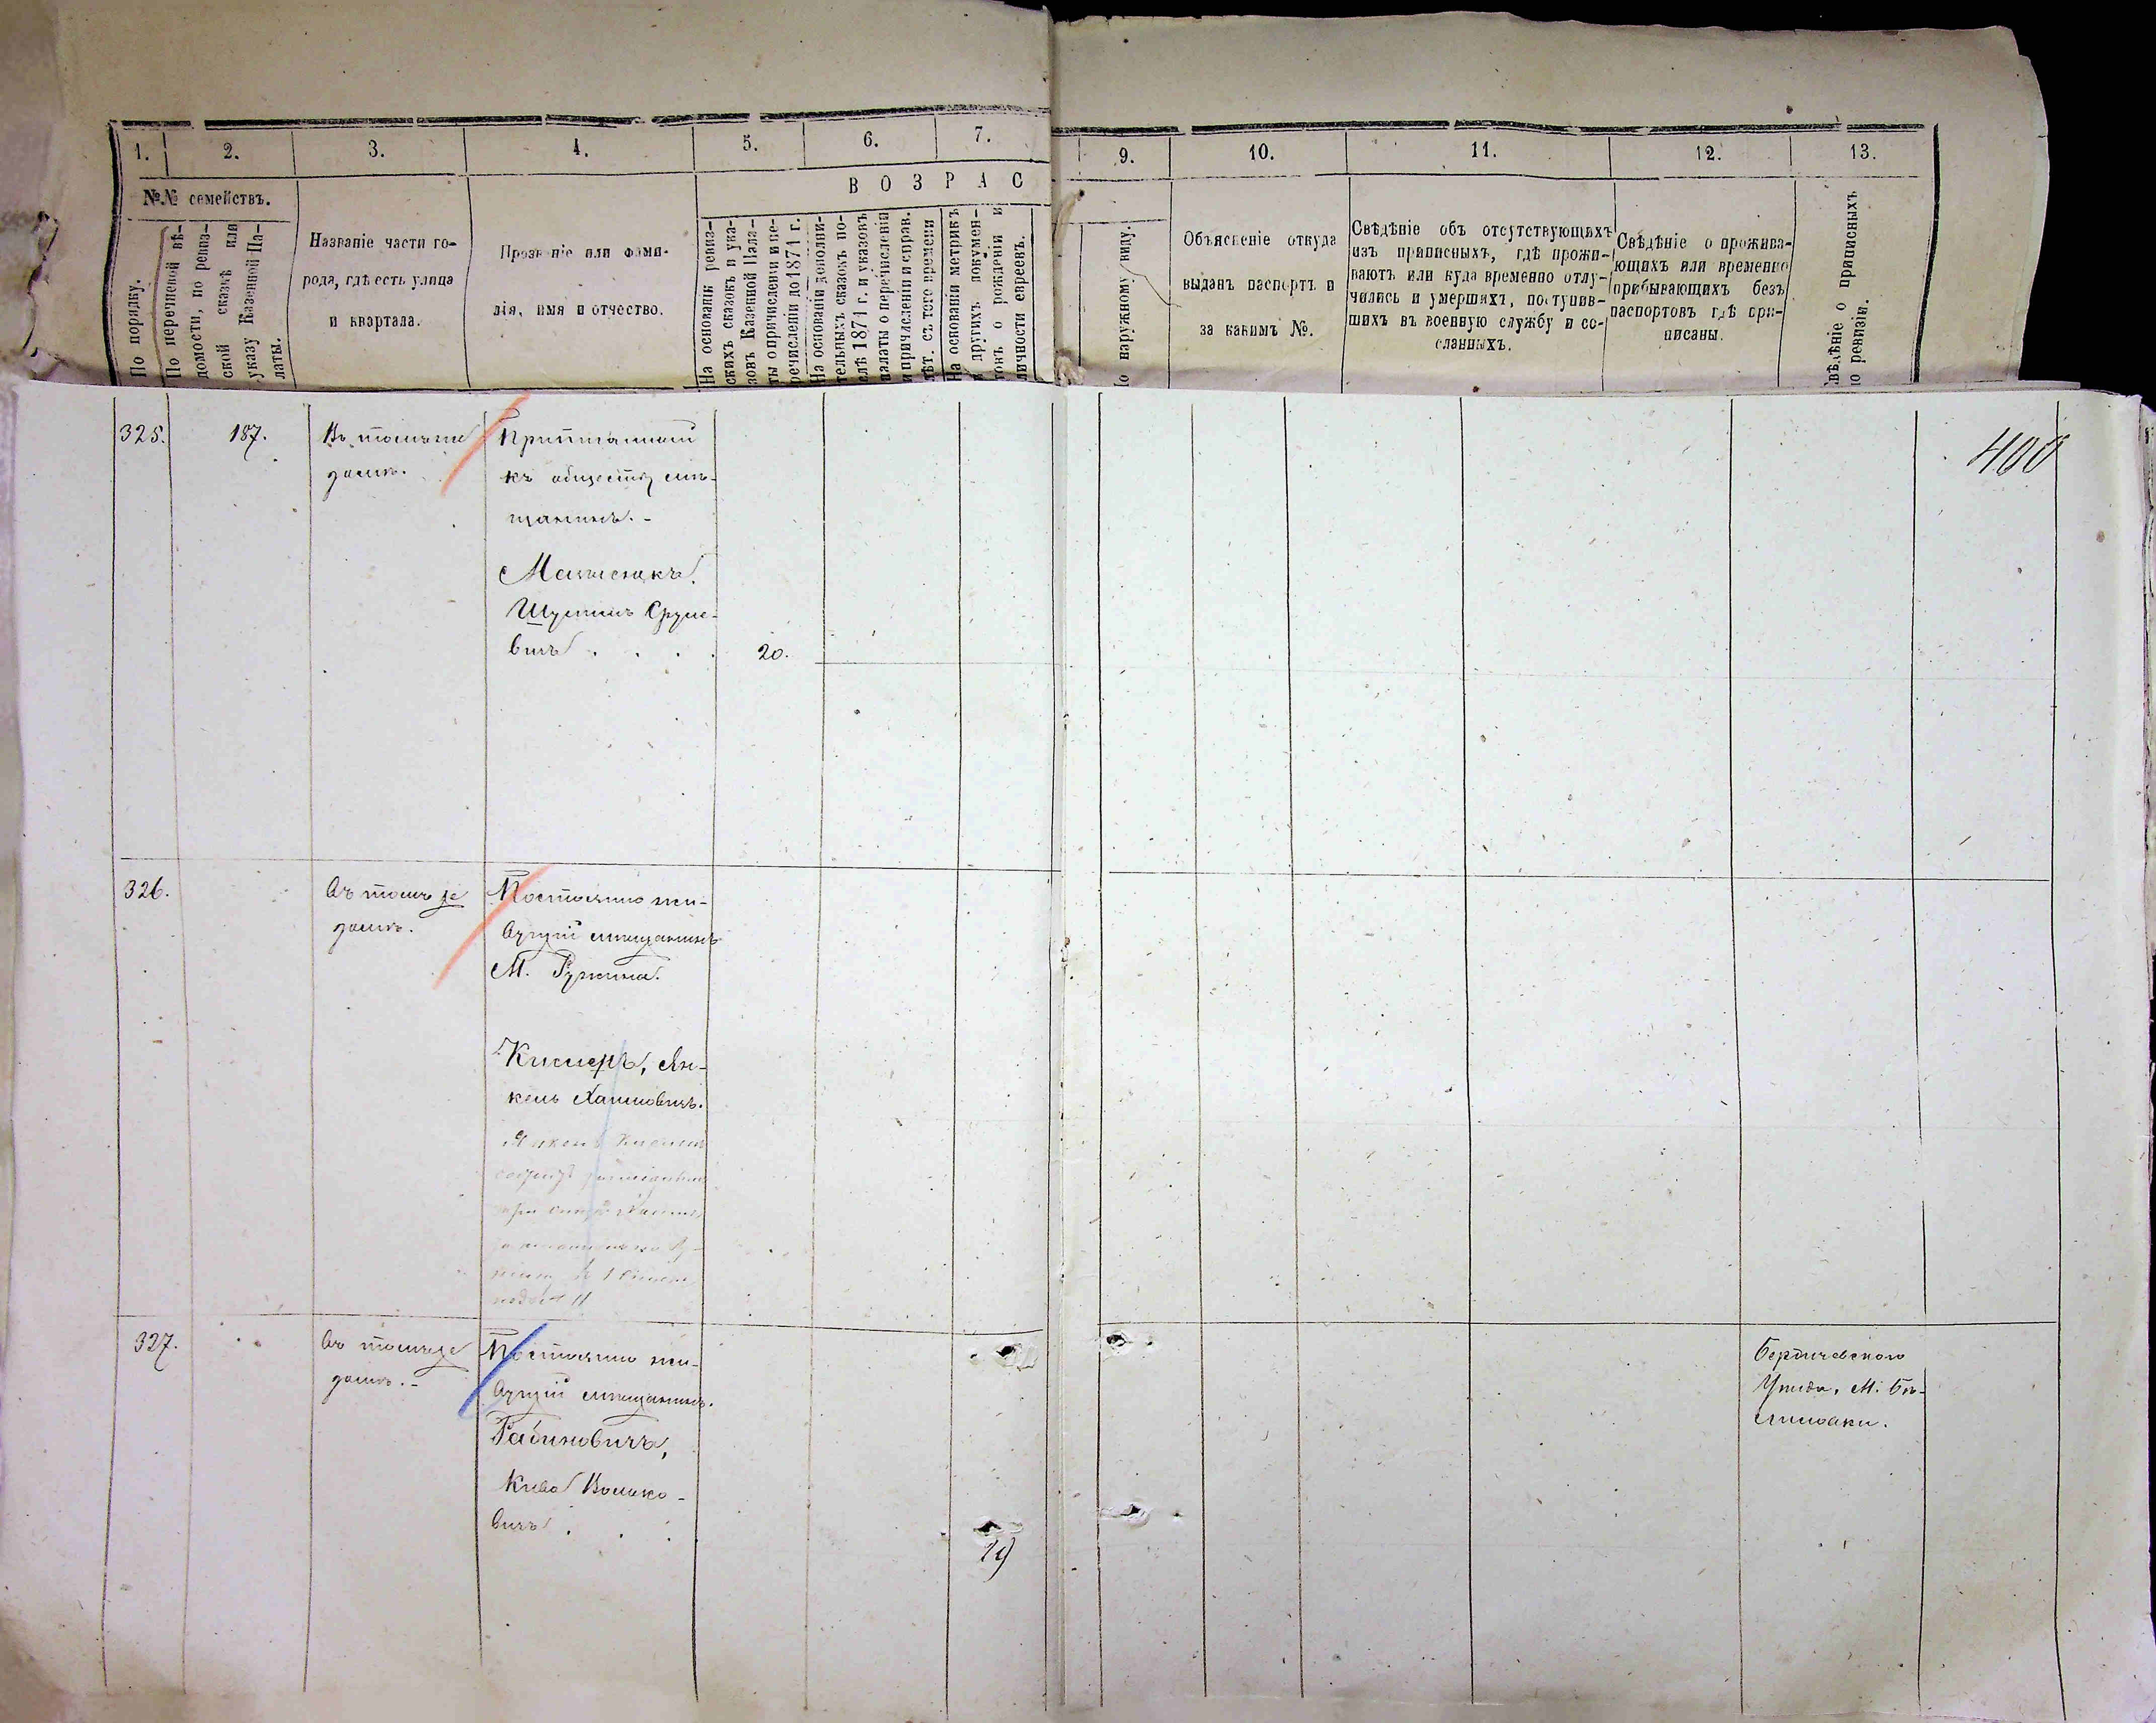 1.
2.
3.
4.
5.
6.
7.
9.
10.
11.
12.
13.
№№ семействъ.
По порядку.
По переписной вѣ-
домости, по ревиз-
ской сказкѣ или
указу Казенной Па-
латы.
Названіе части го-
рода, гдѣ есть улица
и квартала.
Прозваніе или фами-
лія, имя и отчество.
ВОЗРАС
На основаніи ревиз-
скихъ сказокъ и ука-
зовъ Казенной Пала-
ты о причисленіи и пе-
речисленіи до 1871 г.
На основаніи дополни-
тельныхъ сказокъ по-
слѣ 1871 г. и указовъ
палаты о перечисленіи
и причисленіи и справ.
лѣт. съ того времени
На основаніи метрикъ
и другихъ докумен-
товъ о рожденіи и
личности евреевъ.
по наружному виду.
Объясненіе откуда
выданъ паспортъ и
за какимъ №.
Свѣдѣніе объ отсутствующихъ
изъ приписныхъ, гдѣ прожи-
ваютъ или куда временно отлу-
чились и умершихъ, поступив-
шихъ въ военную службу и со-
сланныхъ.
Свѣдѣніе о прожива-
ющихъ или временно
прибывающихъ безъ
паспортовъ гдѣ при-
писаны.
Свѣдѣніе о приписныхъ
по ревизіи.
400
325.
187.
Въ томъ же
домѣ.
Приписанный
къ обществу мѣ-
щанинъ.-
Шулимъ Сруле-
вичъ . . . .
20.
326.
Въ томъ же
домѣ.
Постоянно жи-
вущій мѣщанинъ
М. Ружина.
Кислеръ, Ян-
кель Хаимовичъ.
327.
Въ томъ же
домѣ.-
Постоянно жи-
вущій мѣщанинъ.
Рабиновичъ,
Кива Волько-
вичъ . . .
29
Бердичевскаго
Уѣзда, М. Бѣ-
лиловки.